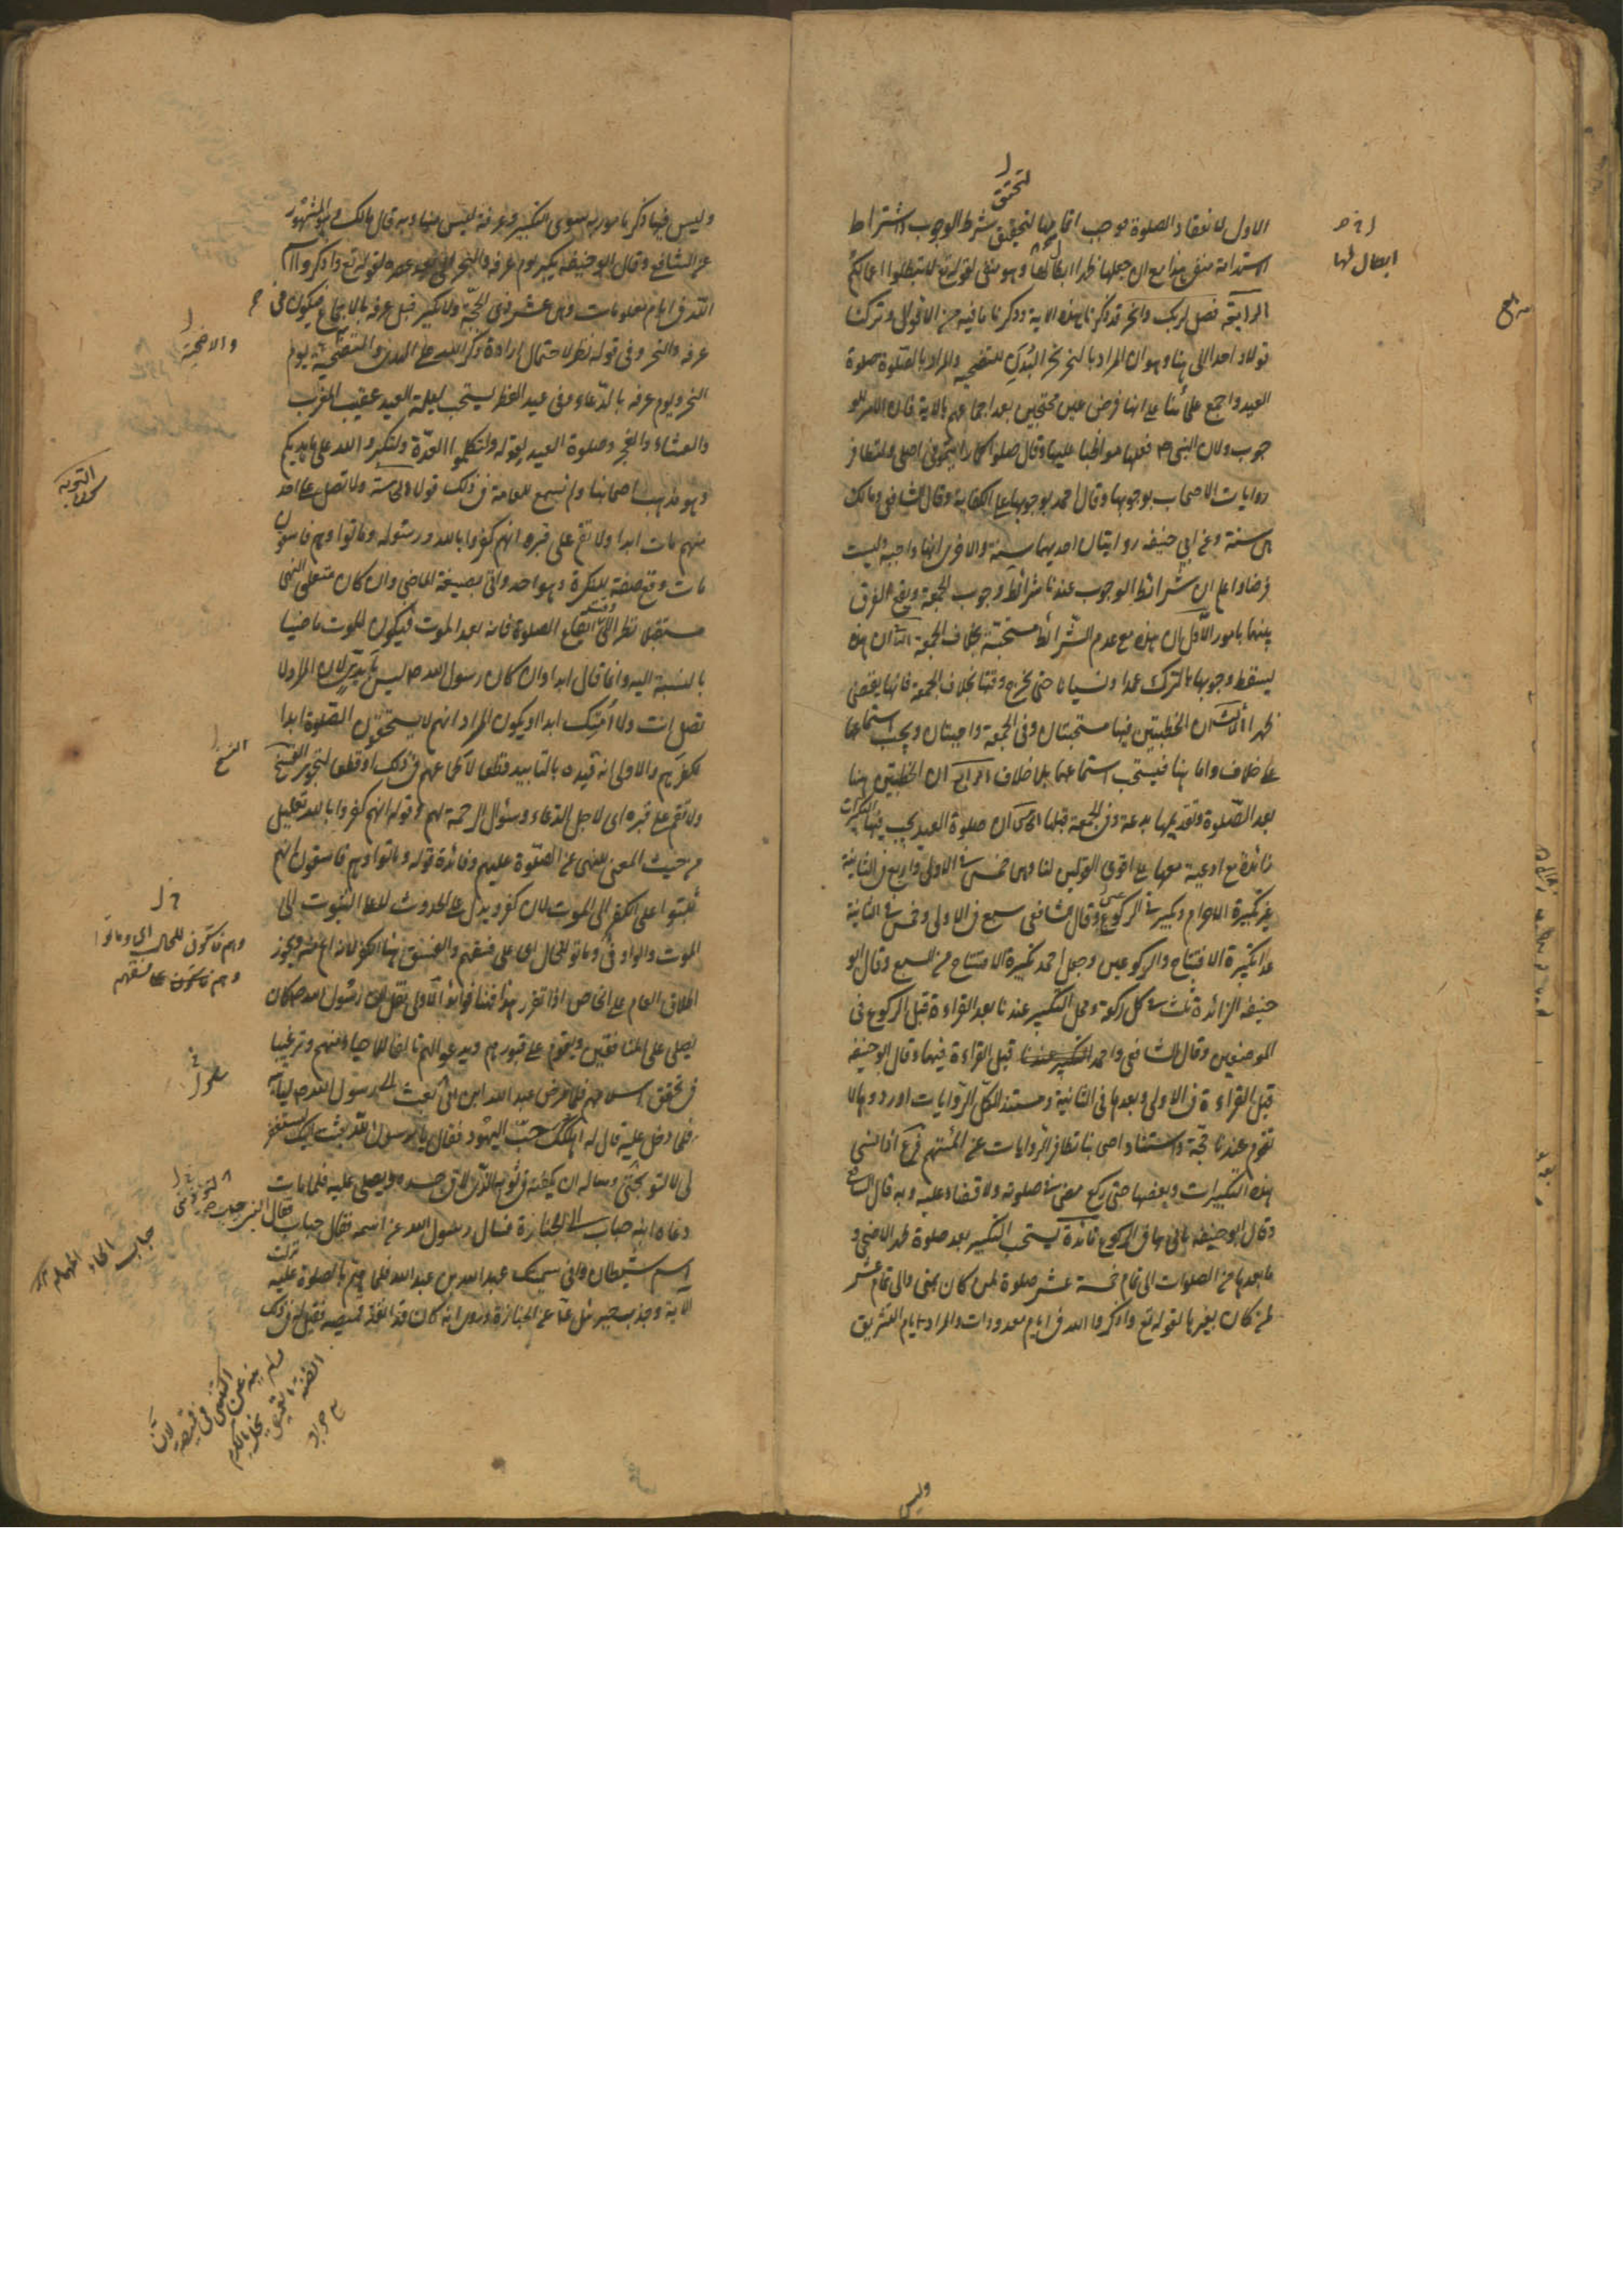 الاول لانعقاد الصلوة موجب اتمامها لتحقق شرط الوجوب واشتراط
الاستدامة منفى هنا مع ان جعلها ظهرا ابطال لها وهو منفى لقوله تع لا تبطلوا اعمالكم
الرابعة فصل لربك وانحر قد ذكرنا هذه الاية وذكرنا ما فيه من الاقوال وتركنا
قولا واحدا الى هنا وهو ان المراد بالنحر نحر البدن للتضحيه والمراد بالصلوة صلوة
العيد واجمع علمائنا على انها فرض عين محتجين بعد اجماعهم بالاية فان الامر للو
جوب ولان النبى ص فعلها مواظبا عليها وقال صلوا كما رايتمونى اصلى ولتظافر
روايات الاصحاب بوجوبها وقال احمد بوجوبها على الكفاية وقال الشافعى ومالك
هى سنة وعن ابي حنيفه روايتان احديهما سنة والاخرى انها واجبه وليست
فرضا واعلم ان شرائط الوجوب عندنا شرائط وجوب الجمعة ويقع الفرق
بينهما بامور الاول ان هذه مع عدم الشرائط مستحبة بخلاف الجمعة الثا ان هذه
يسقط وجوبها بالترك عمدا ونسيانا حتى يخرج وقتها بخلاف الجمعة فانها يقضى
ظهرا الثالث ان الخطبتين فيها مستحبتان وفى الجمعة واجبتان ويجب استماعها
على خلاف واما هنا فيستحب استماعهما بلا خلاف الرابع ان الخطبتين هنا
بعد الصلوة وتقديمها بدعة وفى الجمعة قبلها الخامس ان صلوة العيد يجب فيها التكبيرات
زائدة مع ادعية معها على اقوى القولين لنا وهى خمس فى الاولى واربع فى الثانية
غير تكبيرة الاحرام وتكبير فى الركوعين وقال الشافعى سبع فى الاولى وخمس فى الثانية
عدا تكبيرة الافتتاح والركوعين وجعل احمد تكبيرة الافتتاح من السبع وقال ابو
حنيفه الزائدة ثلث فى كل ركعة ومحل التكبير عندنا بعد القراءة قبل الركوع فى
الموضعين وقال الشافعى واحمد قبل القراءة فيهما وقال ابو حنيفه
قبل القراءة فى الاولى وبعدها فى الثانية ومستند الكل الروايات اوردوها لا
تقوم عندنا حجة واستناد اصحابنا تظافر الروايات عن ائمتهم فرع اذا نسى
هذه التكبيرات وبعضها حتى ركع مضى فى صلوته ولا قضاء عليه وبه قال الشافع
وقال ابو حنيفه ياتى بها فى الركوع فائدة يستحب التكبير بعد صلوة ظهر الاضحى و
ما بعدها من الصلوات الى تمام خمسة عشر صلوة لمن كان بمنى والى تمام عشر
لمن كان بغيرها لقوله تع واذكروا الله فى ايام معدودات والمراد ايام التشريق
وليس
ابطال لها
وليس فيها ذكر مامور به سوى التكبير وعرفة ليس منها وبه قال مالك وهو المشهور
عن الشافعى وقال ابو حنيفه يكبر يوم عرفه والنحر الى بعد عصره لقوله تع واذكروا اسم
الله فى ايام معلومات وهى عشر ذى الحجة ولا تكبير قبل عرفه بالاجماع فيكون فى
عرفه والنحر وفى قوله نظر لاحتمال ارادة ذكر الله على الهدى والتضحية يوم
والاضحية
النحر ويوم عرفه بالدعاء وفى عيد الفطر يستحب ليلة العيد عقيب المغرب
والعشاء والفجر وصلوة العيد لقوله ولتكملوا العدة ولتكبروا الله على ما هديكم
وهو مذهب اصحابنا ولم نسمع للعامة فى ذلك قولا السادسة ولا تصل على احد
التوبه
منهم مات ابدا ولا تقم على قبره انهم كفروا بالله ورسوله وماتوا وهم فاسقون
مات وقع صفة للنكرة وهو احد واتى بصيغة الماضى وان كان متعلق النهى
مستقبلا نظرا الى وقت ايقاع الصلوة فانه بعد الموت فيكون الموت ماضيا
بالنسبة اليه وانما قال ابدا وان كان رسول الله ص ليس بمؤبد لان المراد لا
تصل انت ولا امتك ابدا او يكون المراد انهم لا يستحقون الصلوة ابدا
لكفرهم والاولى انه قيده بالتابيد قطعا لاطماعهم فى ذلك او قطعا لتجويز النسخ
النسخ
ولا تقم على قبره اى لاجل الدعاء وسؤال الرحمة لهم وقوله انهم كفروا بالله تعليل
من حيث المعنى للنهى عن الصلوة عليهم وفائدة قوله وماتوا وهم فاسقون انهم
ثبتوا على الكفر الى الموت لان كفروا يدل على الحدوث لا على الثبوت الى
الموت والواو فى وماتوا للحال اى على فسقهم والفسق هنا الكفر لانه اعم منه ويجوز
وهم فاسقون للحال اى وماتوا
وهم فاسقون على فسقهم
اطلاق العام على الخاص اذا تقرر هذا فهنا فوائد الاولى نقل ان رسول الله ص كان
يصلى على المنافقين ويقوم على قبورهم ويدعو لهم تاليفا للاحياء منهم وترغيبا
فى تحقق اسلامهم فلما مرض عبد الله ابن ابى بعث الى رسول الله ص لياتيه
فلما دخل عليه قال له اهلكك حب اليهود فقال يا رسول الله بعثت اليك لتستغفر
لى لا لتوبخنى وساله ان يكفنه فى ثوبه الذى لاقى جسده ويصلى عليه فلما مات
دعاه ابنه حباب الى الجنازة فسال رسول الله عن اسمه فقال حباب فقال
اسم شيطان وانى سميتك عبد الله بن عبد الله فلما هم بالصلوة عليه نزلت
الاية وجذب جبرئيل عن الجنازة وروى انه كان قد انفذ قميصه فقيل له فى ذلك